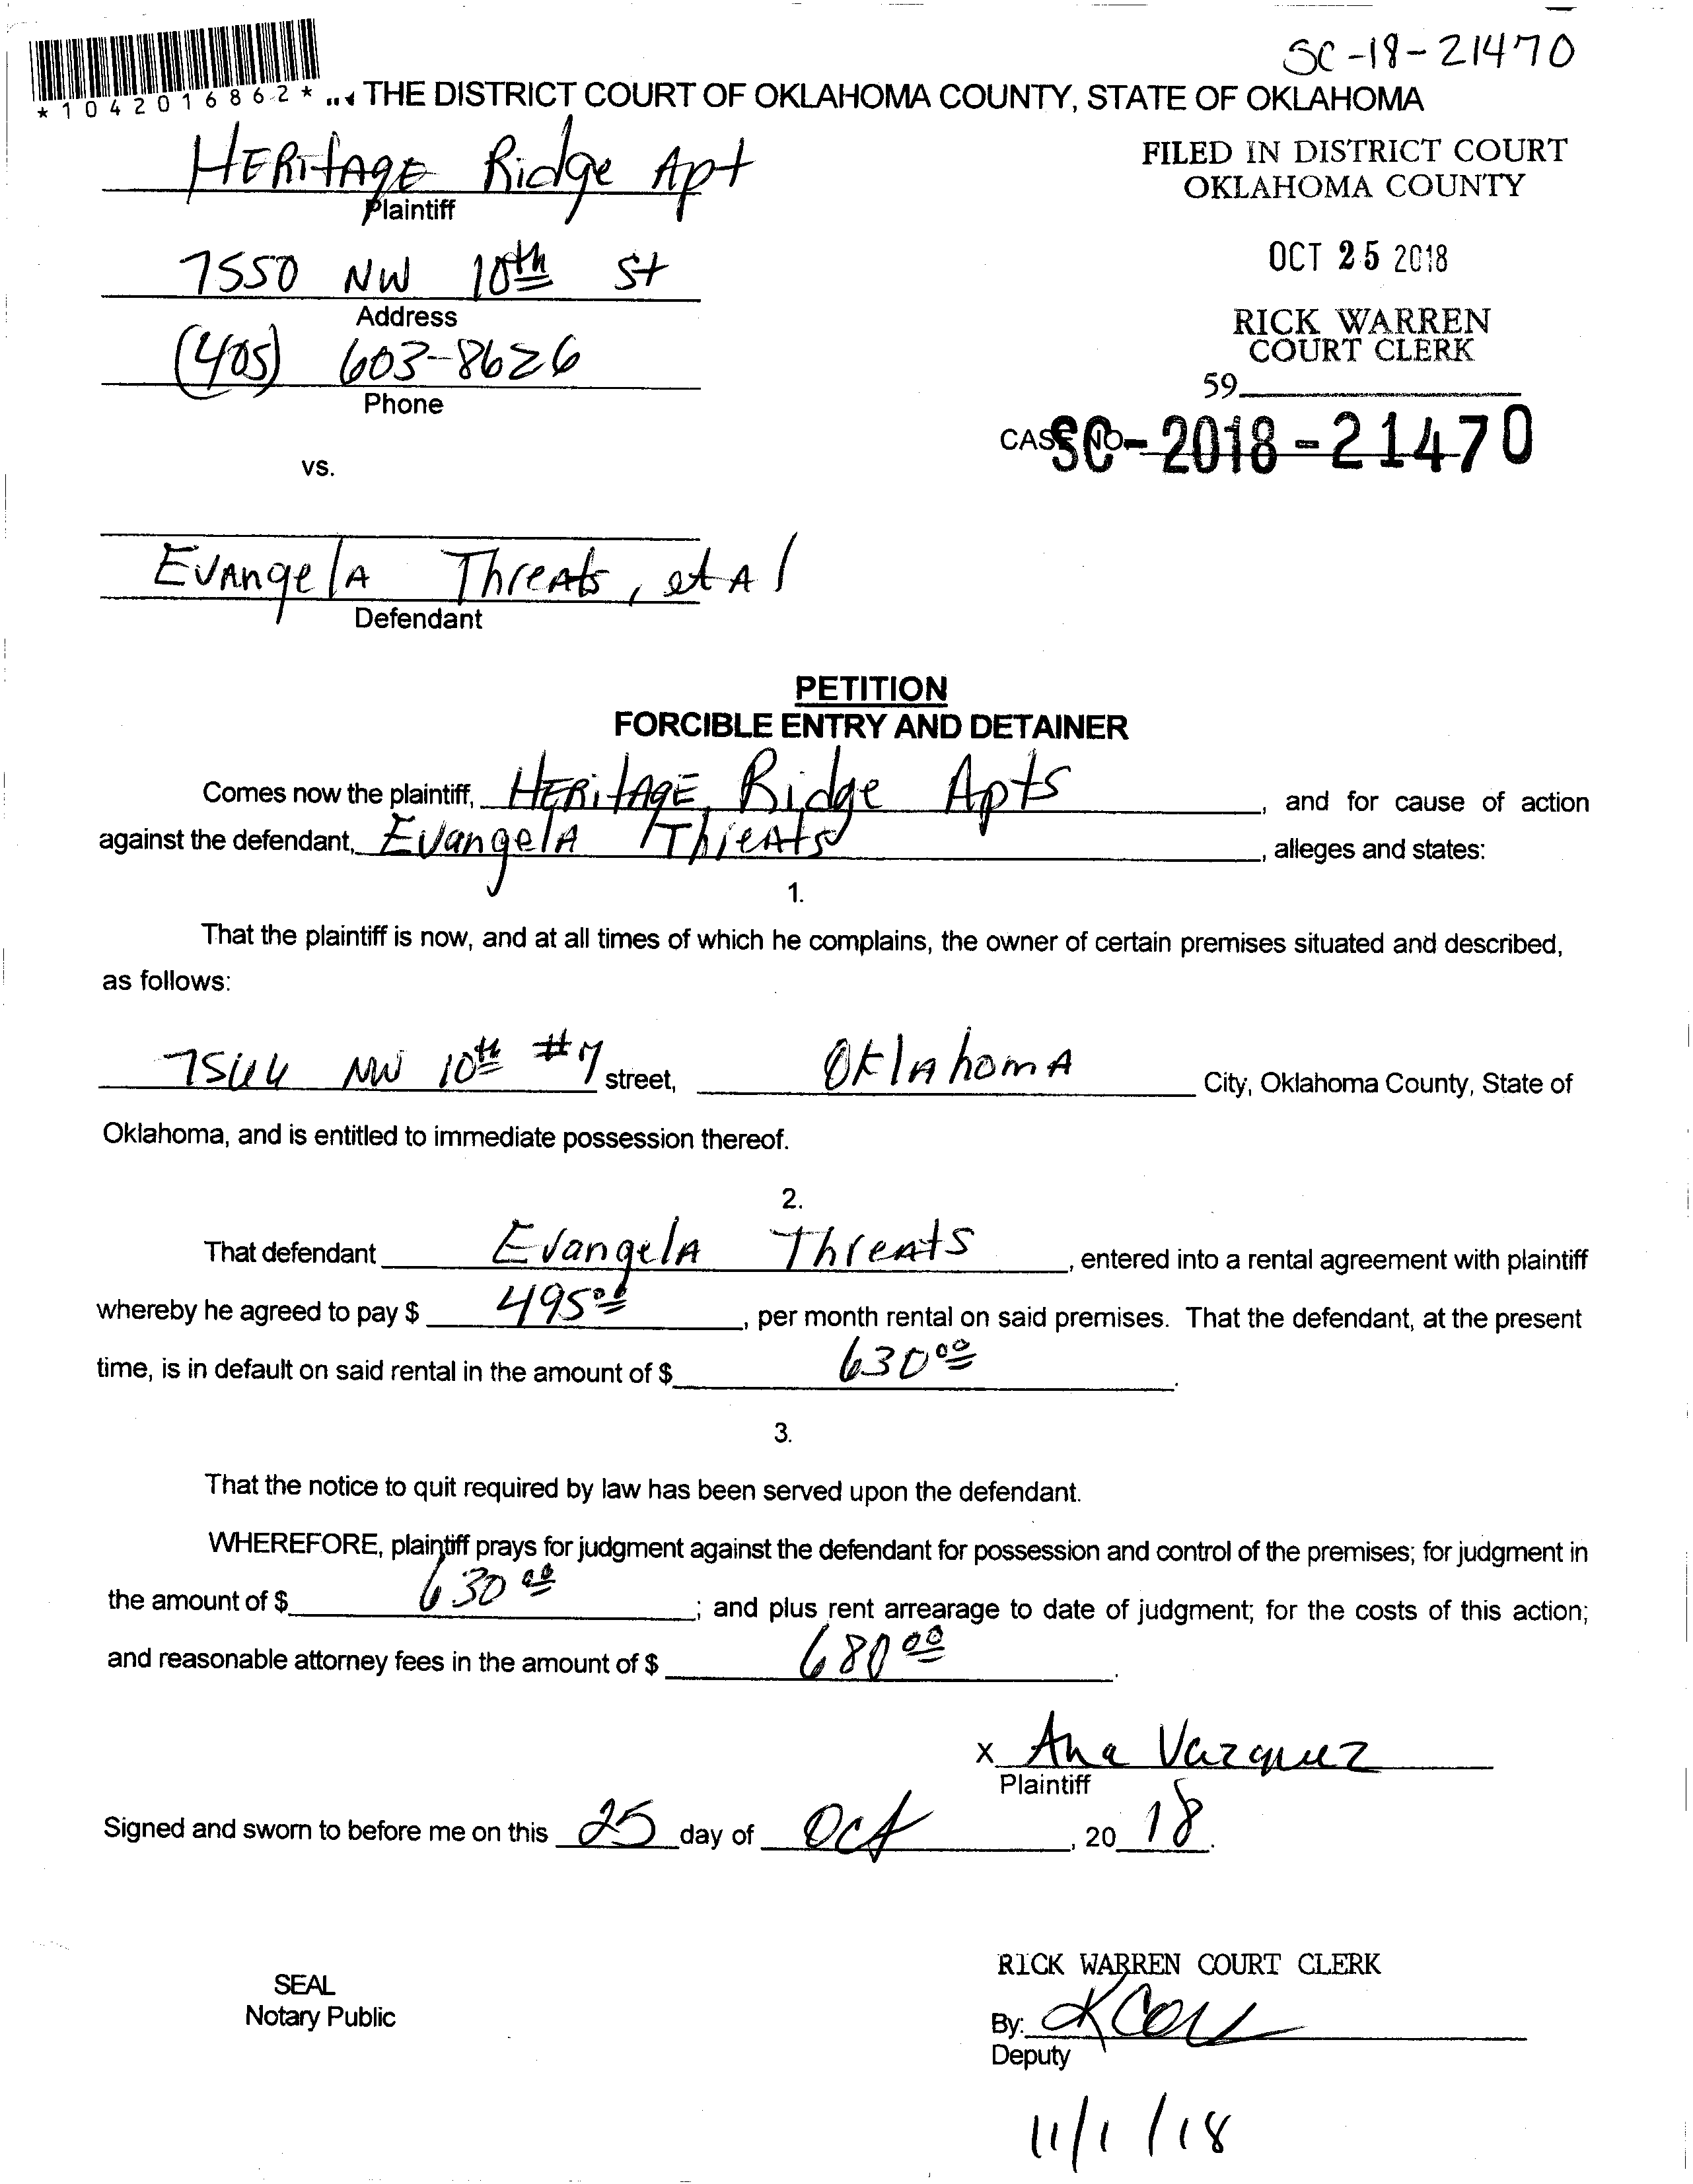 SC-18-21470
*1042016862* THE DISTRICT COURT OF OKLAHOMA COUNTY, STATE OF OKLAHOMA
HERitAgE Ridge Apt
Plaintiff
FILED IN DISTRICT COURT
OKLAHOMA COUNTY
7550 NW 10th St
Address
OCT 25 2018
(405) 603-8626
Phone
RICK WARREN
COURT CLERK
59
CASE NO. SC-2018-21470
vs.
EvAngelA ThreAts, et Al
Defendant
PETITION
FORCIBLE ENTRY AND DETAINER
Comes now the plaintiff, HERitAgE Ridge Apts, and for cause of action
against the defendant, EvangelA ThreAts, alleges and states:
1.
That the plaintiff is now, and at all times of which he complains, the owner of certain premises situated and described,
as follows:
NW 10th #7 street, OklAhomA City, Oklahoma County, State of
Oklahoma, and is entitled to immediate possession thereof.
2.
That defendant EvangelA ThreAts, entered into a rental agreement with plaintiff
whereby he agreed to pay $ 495.00, per month rental on said premises. That the defendant, at the present
time, is in default on said rental in the amount of $ 630.00.
3.
That the notice to quit required by law has been served upon the defendant.
WHEREFORE, plaintiff prays for judgment against the defendant for possession and control of the premises; for judgment in
the amount of $ 630.00; and plus rent arrearage to date of judgment; for the costs of this action;
and reasonable attorney fees in the amount of $ 680.00.
x Ana Vazquez
Plaintiff
Signed and sworn to before me on this 25 day of Oct, 20 18.
RICK WARREN COURT CLERK
SEAL
Notary Public
By:
Deputy
11/1/18